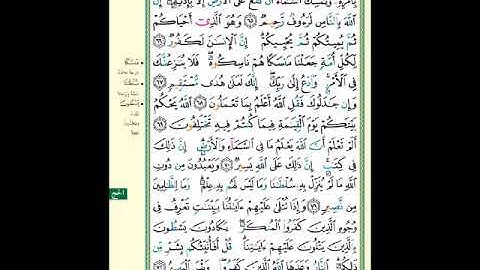 بِأَمْرِهِۦ وَيُمْسِكُ ٱلسَّمَآءَ أَن تَقَعَ عَلَى ٱلْأَرْضِ إِلَّا بِإِذْنِهِۦٓ إِنَّ
ٱللَّهَ بِٱلنَّاسِ لَرَءُوفٌ رَّحِيمٌ ۝٦٥ وَهُوَ ٱلَّذِىٓ أَحْيَاكُمْ
ثُمَّ يُمِيتُكُمْ ثُمَّ يُحْيِيكُمْ إِنَّ ٱلْإِنسَٰنَ لَكَفُورٌ ۝٦٦
لِكُلِّ أُمَّةٍ جَعَلْنَا مَنسَكًا هُمْ نَاسِكُوهُ فَلَا يُنَٰزِعُنَّكَ
فِى ٱلْأَمْرِ وَٱدْعُ إِلَىٰ رَبِّكَ إِنَّكَ لَعَلَىٰ هُدًى مُّسْتَقِيمٍ ۝٦٧
وَإِن جَٰدَلُوكَ فَقُلِ ٱللَّهُ أَعْلَمُ بِمَا تَعْمَلُونَ ۝٦٨ ٱللَّهُ يَحْكُمُ
بَيْنَكُمْ يَوْمَ ٱلْقِيَٰمَةِ فِيمَا كُنتُمْ فِيهِ تَخْتَلِفُونَ ۝٦٩
أَلَمْ تَعْلَمْ أَنَّ ٱللَّهَ يَعْلَمُ مَا فِى ٱلسَّمَآءِ وَٱلْأَرْضِ إِنَّ ذَٰلِكَ
فِى كِتَٰبٍ إِنَّ ذَٰلِكَ عَلَى ٱللَّهِ يَسِيرٌ ۝٧٠ وَيَعْبُدُونَ مِن دُونِ
ٱللَّهِ مَا لَمْ يُنَزِّلْ بِهِۦ سُلْطَٰنًا وَمَا لَيْسَ لَهُم بِهِۦ عِلْمٌ وَمَا لِلظَّٰلِمِينَ
مِن نَّصِيرٍ ۝٧١ وَإِذَا تُتْلَىٰ عَلَيْهِمْ ءَايَٰتُنَا بَيِّنَٰتٍ تَعْرِفُ فِى
وُجُوهِ ٱلَّذِينَ كَفَرُوا۟ ٱلْمُنكَرَ يَكَادُونَ يَسْطُونَ
بِٱلَّذِينَ يَتْلُونَ عَلَيْهِمْ ءَايَٰتِنَا قُلْ أَفَأُنَبِّئُكُم بِشَرٍّ مِّن
ذَٰلِكُمُ ٱلنَّارُ وَعَدَهَا ٱللَّهُ ٱلَّذِينَ كَفَرُوا۟ وَبِئْسَ ٱلْمَصِيرُ ۝٧٢
مَنسَكًا
يَسْطُونَ
الحج